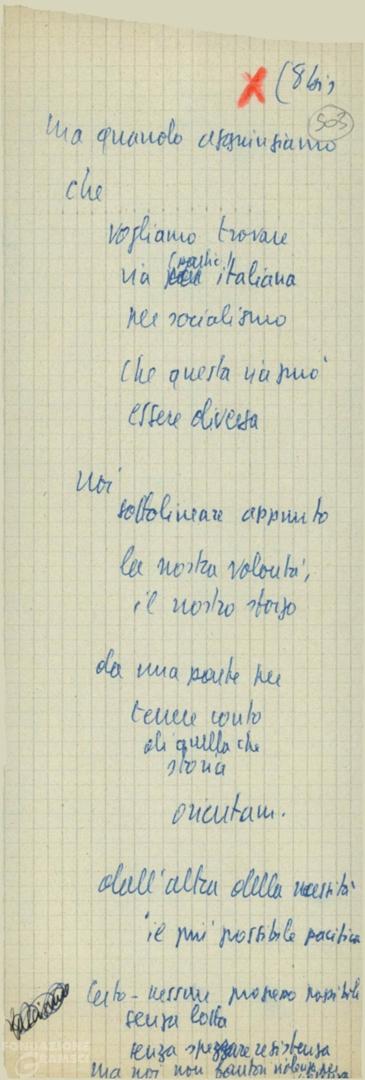 X (8 bis)
503
Ma quando aggiungiamo
che
vogliamo trovare
via italiana
per socialismo
che questa via può
essere diversa
noi
sottolineare appunto
la nostra volontà,
il nostro sforzo
da una parte per
tenere conto
di quella che
storia
orientam.
dall'altra della necessità
il più possibile pacifica
Certo - nessun possibile
senza lotta
senza spezzare resistenza
Ma noi non
FONDAZIONE
GRAMSCI